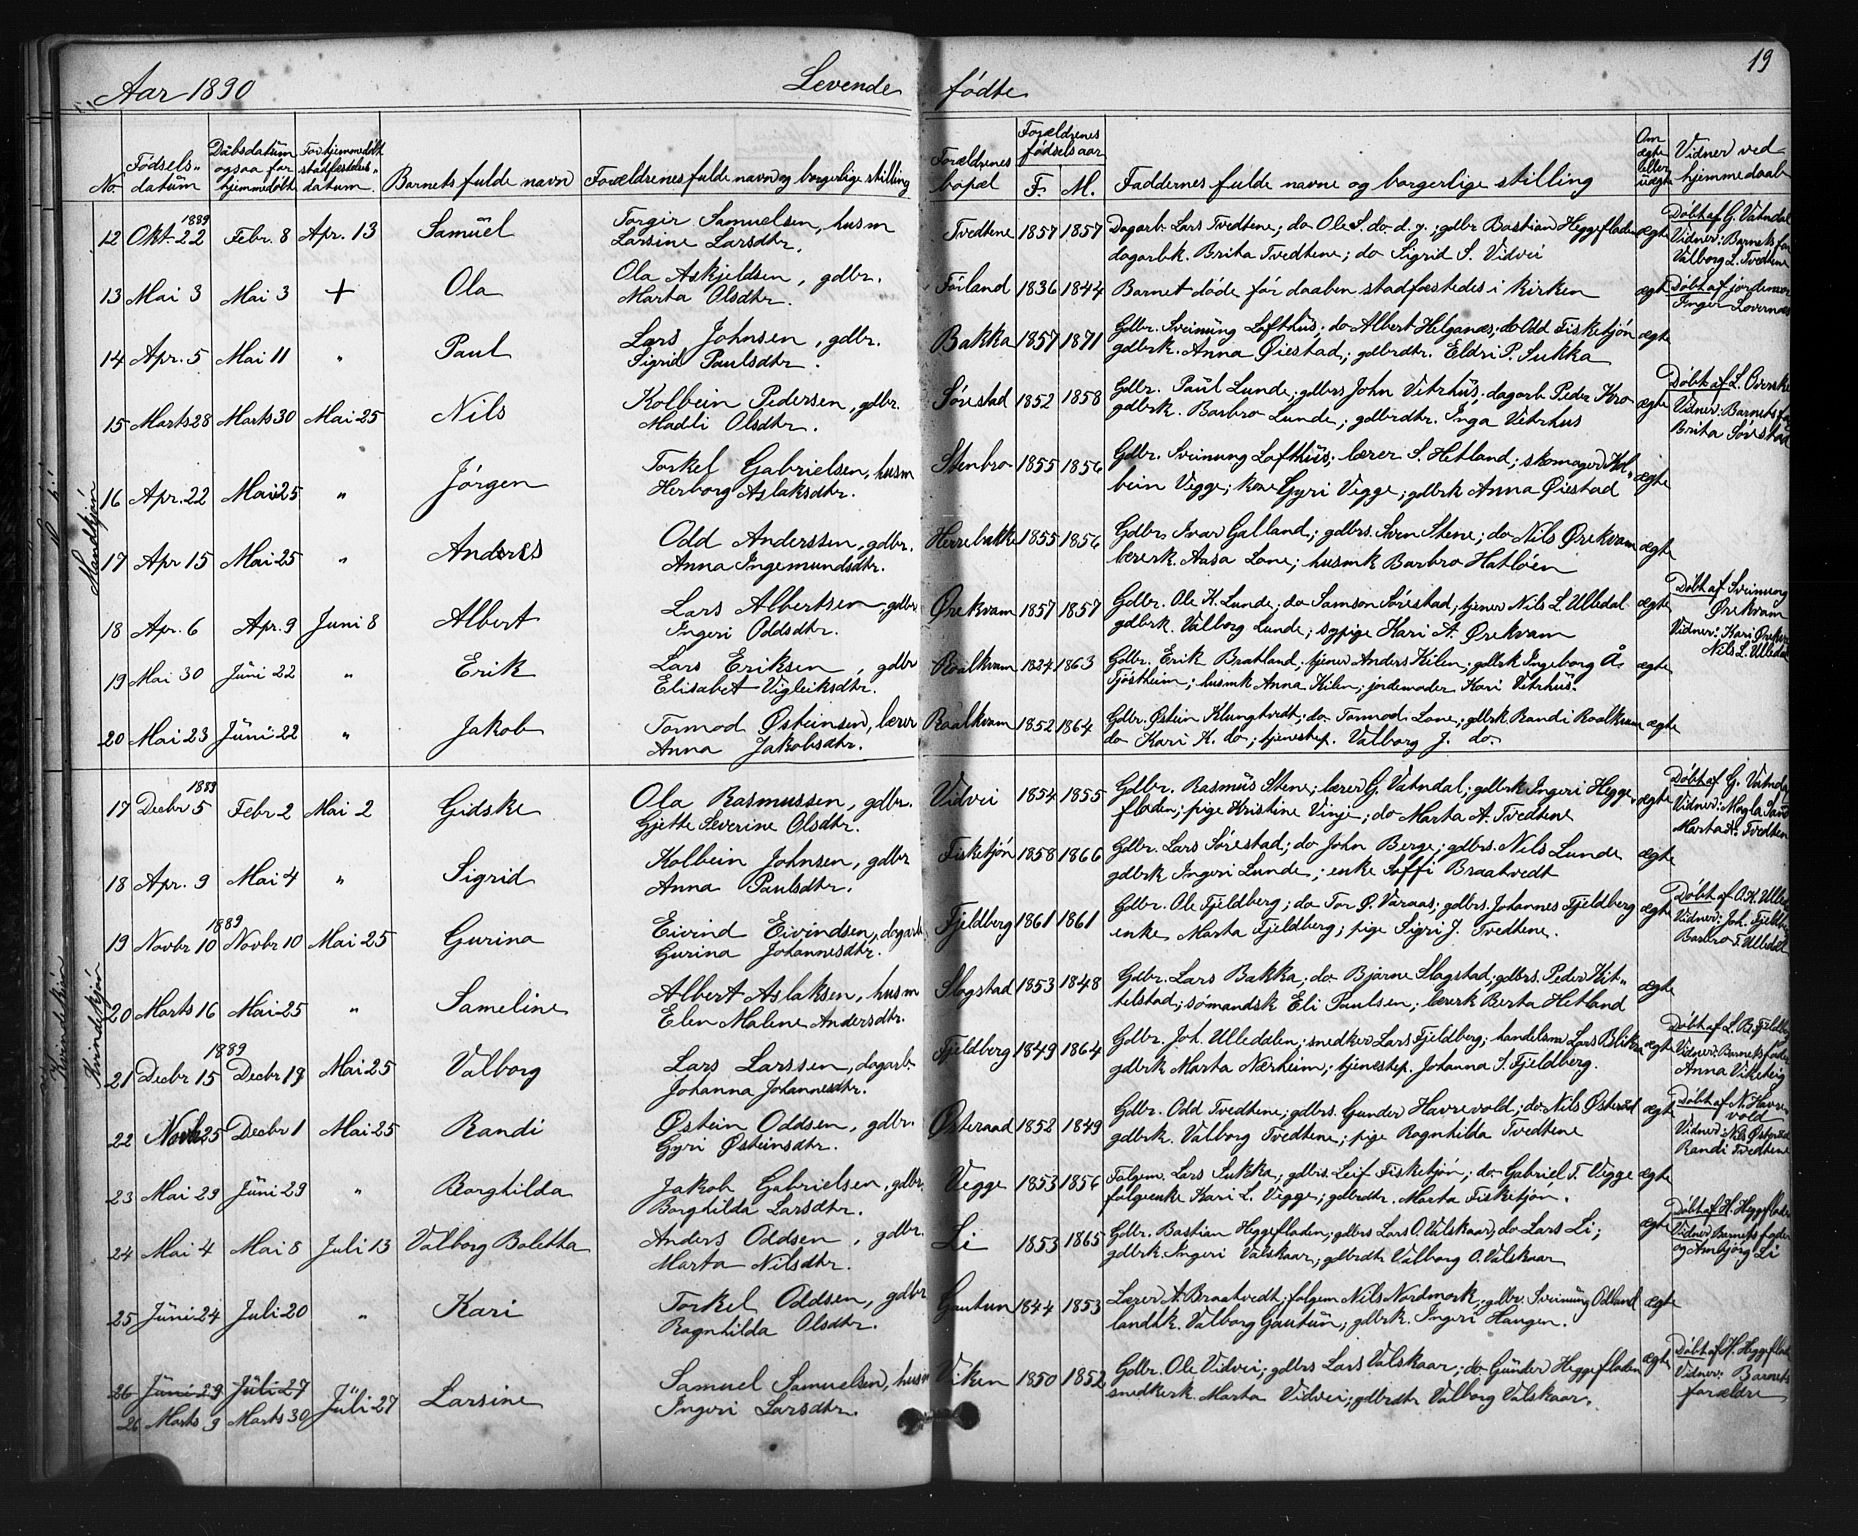 Aar 1890 Levende fødte 19
No. Fødsels-datum Dåbsdatum ogsaa for hjemmedøbt For hjemmedøbt stadfæstelses-datum Barnets fulde navn Forældrenes fulde navn og borgerlige stilling Forældrenes bopæl Forældrenes fødselsaar F. M. Faddernes fulde navne og borgerlige stilling Om ægte eller uægte Vidner ved hjemmedaab
Mandkjøn
12 Okt. 22 1889 Febr. 8 Apr. 13 Samŭel Torgir Samuelsen, husm Tvedtene 1857 1857 Dagarb. Lars Tvedtene; do Ole S. do d. y.; gdbr Bastian Heggefladen ægte Døbt af G. Vatndal
Larsine Larsdtr. dagarbk. Brita Tvedtene; do Sigrid S. Vidvei Vidner: Barnets far
Valborg L. Tvedtene
13 Mai 3 Mai 3 + Ola Ola Askjeldsen, gdbr. Föiland 1836 1844 Barnet døde før daaben stadfæstedes i kirken ægte Døbt af jordemor
Marta Olsdtr. Inger Lovernæs
14 Apr. 5 Mai 11 " Paul Lars Johnsen, gdbr. Bakka 1857 1871 Gdbr. Sveinŭng Lofthŭs; do Albert Helganæs; do Odd Fisketjön ægte
Sigrid Paulsdtr. gdbrk. Anna Øiestad; gdbrdtr. Eldri P. Sukka
15 Marts 28 Marts 30 Mai 25 Nils Kolbein Pedersen, gdbr. Sørestad 1852 1858 Gdbr. Paŭl Lunde; gdbrs John Vetrhŭs; dagarb Peder Kro ægte Døbt af L.
Madli Olsdtr. gdbrk. Barbro Lunde; gdbrdtr. Inga Vetrhus Vidner: Barnets far
Brita Sörestad
16 Apr. 22 Mai 25 " Jörgen Torkel Gabrielsen, husm Stenbro 1855 1856 Gdbr. Sveinung Lofthŭs; lærer S. Hetland; skomager Kol- ægte
Herborg Aslaksdtr. bein Vegge; kone Gyri Vegge; gdbrk Anna Øiestad
17 Apr 15 Mai 25 " Anders Odd Anderssen, gdbr. Herrebakke 1855 1856 Gdbr. Ivar Galland; gdbrs. Sven Stene; do Nils Ørekvam ægte
Anna Ingemundsdtr. lærerk. Aasa Lone; husmk Barbro Hatløen
18 Apr. 6 Apr. 9 Juni 8 Albert Lars Albertsen, gdbr Ørekvam 1857 1857 Gdbr. Ole K. Lunde; do Samson Sørestad; tjener Nils L. Ulledal ægte Døbt af Sveinung
Ingeri Oddsdtr. gdbrk. Valborg Lunde; sypige Kari A. Ørekvam Ørekvam
Vidner: Kari Ørekvam
Nils L. Ulledal
19 Mai 30 Jŭni 22 " Erik Lars Eriksen, gdbr Roalkvam 1824 1863 Gdbr. Erik Bratland; tjener Anders Kilen; gdbrk Ingeborg Å. ægte
Elisabet Vigleiksdtr. Tjöstheim; husmk Anna Kilen; jordemoder Kari Vetrhŭs.
20 Mai 23 Jŭni 22 " Jakob Tormod Østeinsen, lærer Raalkvam 1852 1864 Gdbr. Østein Klungtvedt; do Tormod Lone; gdbrk Randi Roalkvam ægte
Anna Jakobsdtr. do Kari K. do; tjenestep. Valborg J. do.
Kvindekjön
17 Decbr 5 1889 Febr 2 Mai 2 Gidske Ola Rasmussen, gdbr. Vidvei 1854 1855 Gdbr. Rasmŭs Stene; lærer G. Vatndal; gdbrk Ingeri Hegge- ægte Døbt af G. Vatndal
Gjette Severine Olsdtr. fladen; pige Kristine Vinje; do Marta A. Tvedtene Vidner: Magla Sand
Marta A. Tvedtene
18 Apr. 9 Mai 4 " Sigrid Kolbein Johnsen, gdbr Fisketjön 1858 1866 Gdbr. Lars Sörestad; do John Berge; gdbrs. Nils Lunde ægte
Anna Paulsdtr. gdbrk Ingeri Lunde; enke Soffi Braatvedt
19 Novbr 10 1889 Novbr 10 Mai 25 Gurina Eivind Eivindsen, dagarb Fjeldberg 1861 1861 Gdbr. Ole Fjeldberg; do Tor Ø. Varaas; gdbrs. Johannes Fjeldberg ægte Døbt af O. K. Ulledal
Gurina Johannesdtr. enke Marta Fjeldberg; pige Sigri J. Tvedtene. Vidner: Joh. Fjeldberg
Barbro T. Ulledal
20 Marts 16 Mai 25 " Sameline Albert Aslaksen, husm Slogstad 1853 1848 Gdbr. Lars Bakka; do Bjarne Slagstad; gdbrs. Peder Kit- ægte
Elen Malene Andersdtr. telstad; sømandsk Eli Paulsen; lærerk Berta Hetland
21 Decbr 15 1889 Decbr 19 Mai 25 Valborg Lars Larssen, dagarb. Fjeldberg 1849 1864 Gdbr. Joh. Ulledalen; snedker Lars Fjeldberg; handelsm Lars Bliksa ægte Døbt af L. B. Fjeldberg
Johanna Johannesdtr. gdbrk Marta Nærheim; tjenestep. Johanna S. Fjeldberg. Vidner: Barnets fader
Anna Vikeheig
22 Novb 25 Decbr 1 Mai 25 Randi Østein Oddsen, gdbr. Østeraad 1852 1849 Gdbr. Odd Tvedtene; gdbrs. Gunder Havrevold; do Nils Østeraad ægte Døbt af N. Havre-
Gyri Østeinsdtr. gdbrk. Valborg Tvedtene; pige Ragnhilda Tvedtene vold
Vidner: Nils Østeraad
Randi Tvedtene
23 Mai 29 Jŭni 29 " Borghilda Jakob Gabrielsen, gdbr. Vegge 1853 1856 Folgem. Lars Sukka; gdbrs. Leif Fisketjön; do Gabriel T. Vegge ægte
Borghilda Larsdtr. folgeenke Kari L. Vegge; gdbrdtr. Marta Fisketjøn.
24 Mai 4 Mai 8 Juli 13 Valborg Boletha Anders Oddsen, gdbr. Li 1853 1865 Gdbr. Bastian Heggefladen; gdbrs Lars O. Valskaar; do Lars Li; ægte Døbt af H. Heggefladen
Marta Nilsdtr. gdbrk. Ingeri Valskaar; gdbrdtr Valborg O. Valskaar Vidner: Barnets fader
og Ambjørg Li
25 Jŭni 24 Juli 20 " Kari Torkel Oddsen, gdbr Gautun 1844 1853 Lærer A. Braatvedt; folgem Nils Nordmork; gdbr. Sveinŭng Odland ægte
Ragnhilda Olsdtr. landhk. Valborg Gautŭn; gdbrk. Ingeri Haugen.
26 Jŭni 29 Jŭli 27 Jŭli 27 Larsine Samuel Samuelsen, husm Viken 1850 1852 Gdbr. Ole Vidvei; gdbrs Lars Valskaar; do Gŭnder Heggefladen ægte Døbt af H. Heggefladen
26 Marts 9 Marts 30 Ingeri Larsdtr. snedkerk. Marta Vidvei; gdbrdtr Valborg Valskaar. Vidner: Barnets
forældre